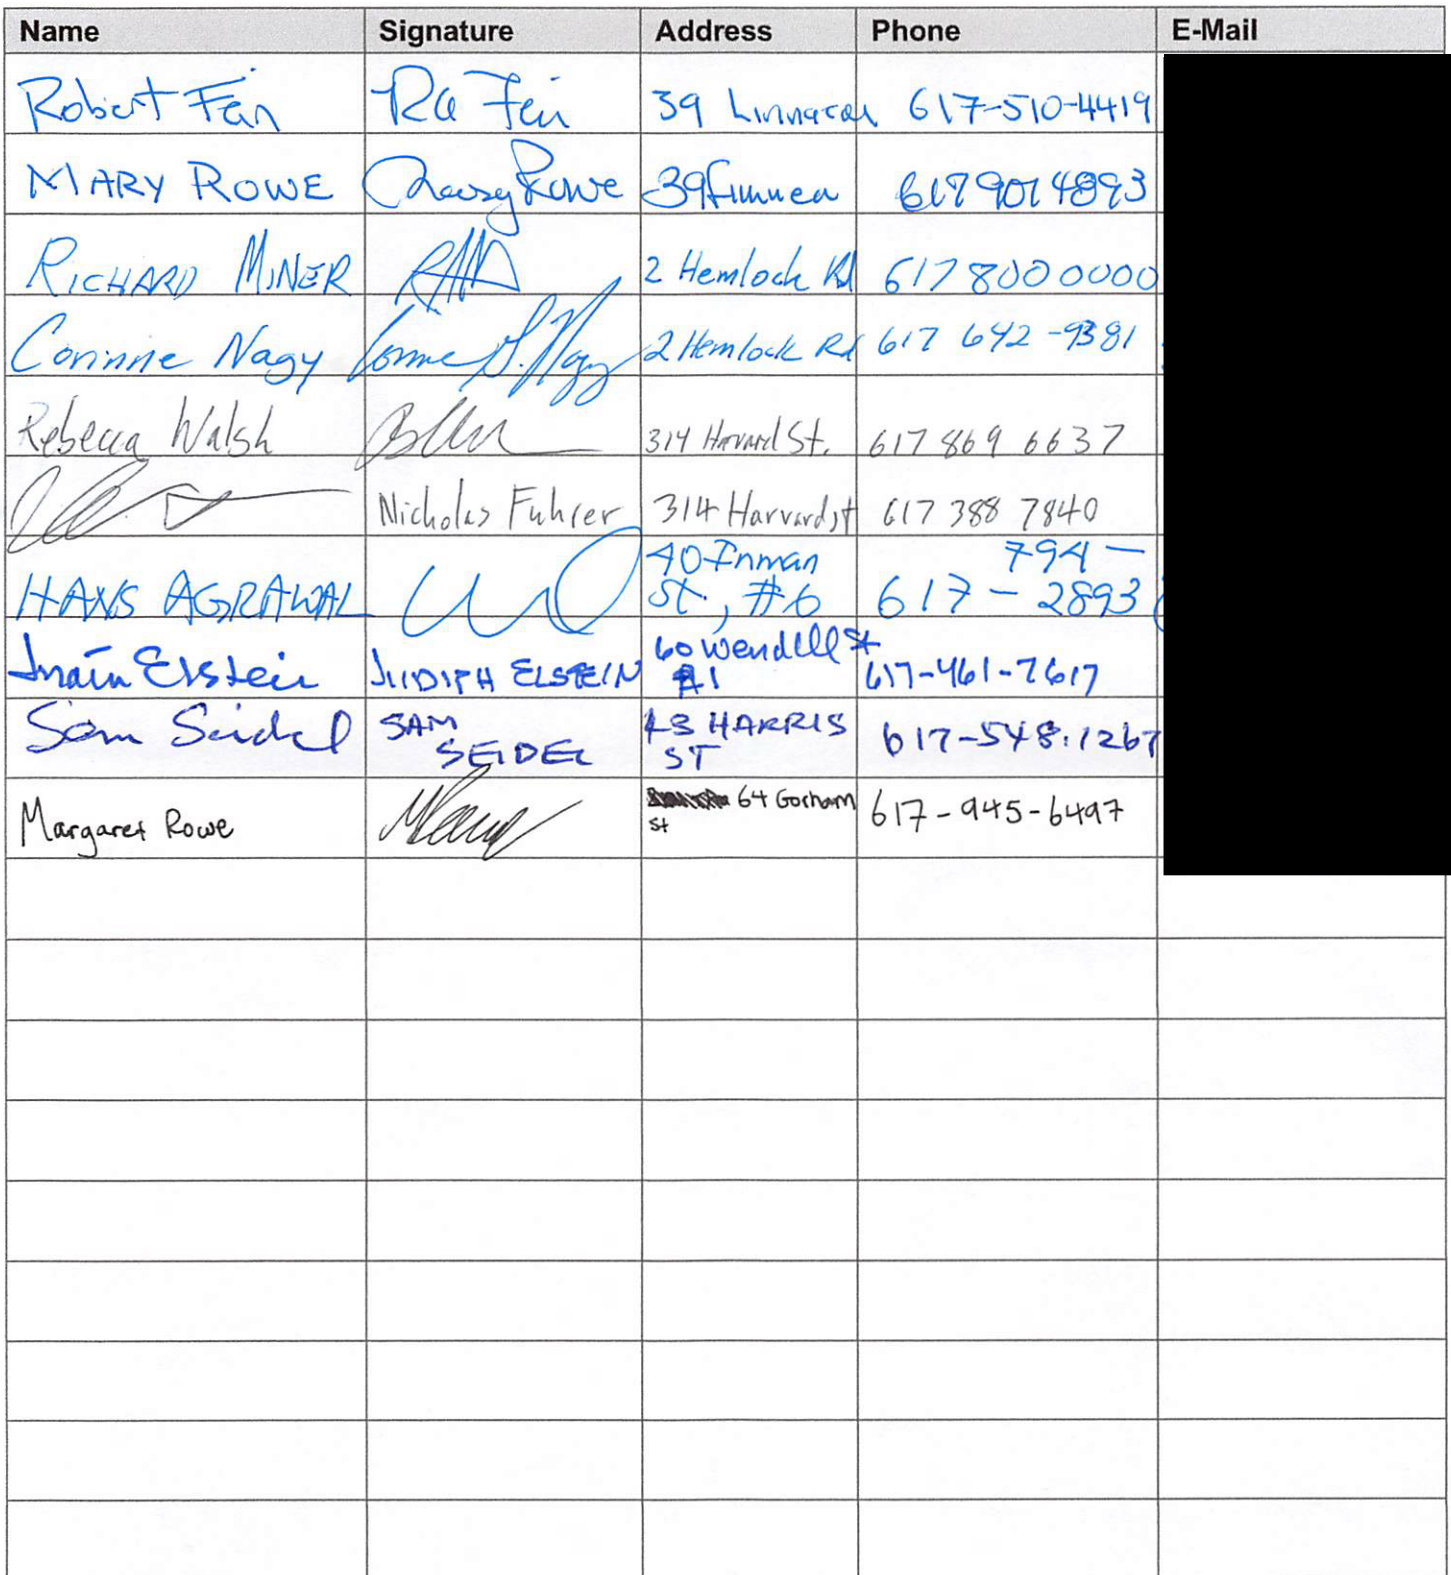 Name Signature Address Phone E-Mail
Robert Fein R Fein 39 Linnaean 617-510-4419
MARY ROWE Mary Rowe 39 Linnaea 617 901 4893
RICHARD MINER 2 Hemlock Rd 617 800 0000
Corinne Nagy Corinne Nagy 2 Hemlock Rd 617 642-9381
Rebecca Walsh 314 Harvard St. 617 869 6637
Nicholas Fuhrer 314 Harvard st 617 388 7840
40 Inman 794-
HANS AGRAWAL St., #6 617-2893
60 Wendell St
Elstein JUDIPH ELSTEIN #1 617-461-7617
Sam Seidel SAM HARRIS 617-548.1267
SEIDEL ST
64 Gorham
Margaret Rowe St 617-945-6497